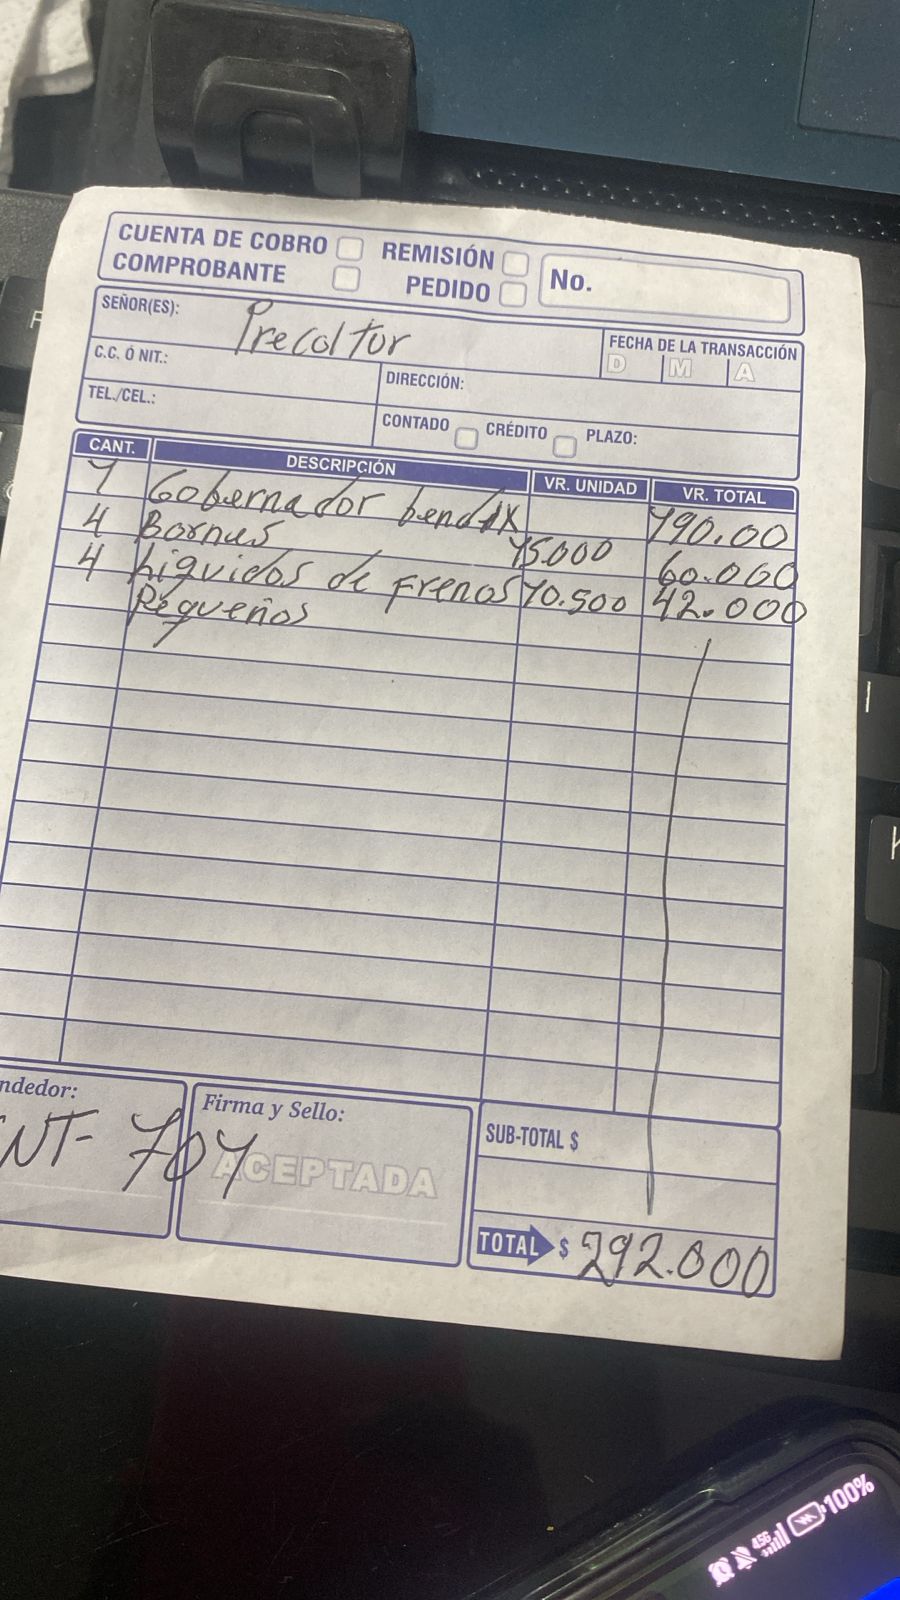 CUENTA DE COBRO REMISIÓN No.
COMPROBANTE PEDIDO
SEÑOR(ES): Precoltur
FECHA DE LA TRANSACCIÓN
D M A
C.C. Ó NIT.: DIRECCIÓN:
TEL./CEL.: CONTADO CRÉDITO PLAZO:
CANT. DESCRIPCIÓN VR. UNIDAD VR. TOTAL
1 Gobernador bendix 190.00
4 Bornes 15000 60.000
4 Liquidos de Frenos 10.500 42.000
Pequeños
ndedor: Firma y Sello: SUB-TOTAL $
INT- 701
ACEPTADA
TOTAL $ 292.000
4.5G 100%